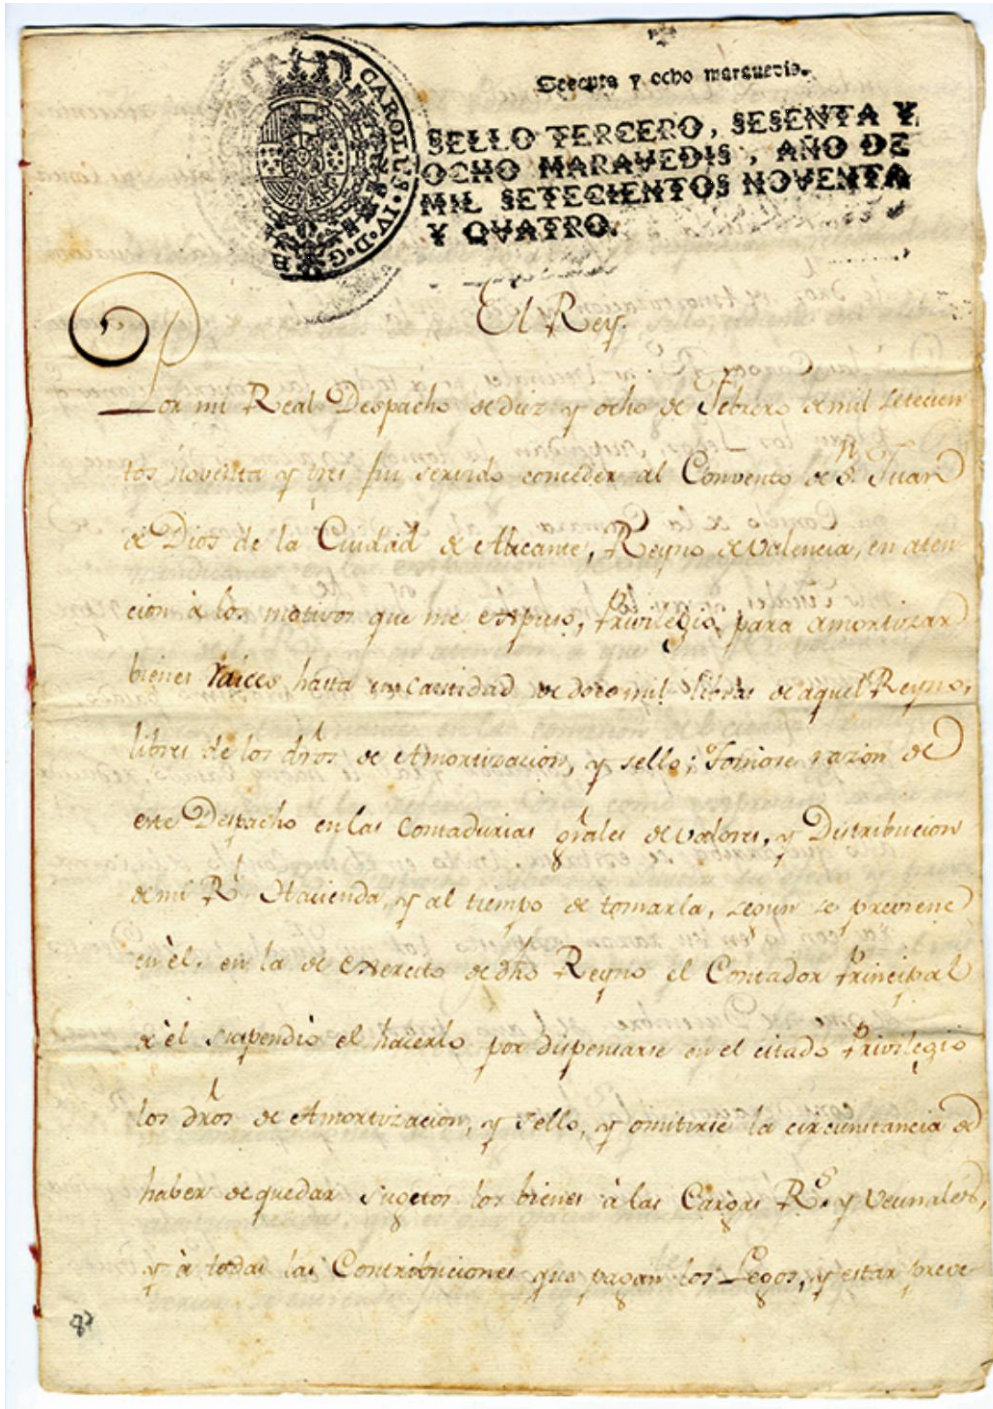 Sesenta y ocho maravedis.
SELLO TERCERO, SESENTA Y
OCHO MARAVEDIS, AÑO DE
MIL SETECIENTOS NOVENTA
Y QVATRO.
CAROLUS·IV·D·G·
El Rey.
Por mi Real Despacho de diez y ocho de Febrero de mil setecien
tos noventa y tres fui servido conceder al Convento de S.n Juan
de Dios de la Ciudad de Alicante, Reyno de Valencia, en aten
cion à los motivos que me expuso, Privilegio para amortizar
bienes raices hasta en cantidad de doce mil libras de aquel Reyno,
libres de los dros de Amortizacion, y sello; Tomose razon de
este Despacho en las Contadurias grales de valores, y Distribucion
de mi R.l Hacienda, y al tiempo de tomarla, segun se previene
en èl, en la de Exercito de dho Reyno el Contador Principal
de èl suspendiò el hacerlo por dispensarse en el citado Privilegio
los dros de Amortizacion, y Sello, y omitirse la circunstancia de
haber de quedar sugetos los bienes à las Cargas R.s y Vecinales,
y à todas las Contribuciones que pagan los Legos, y estar preve